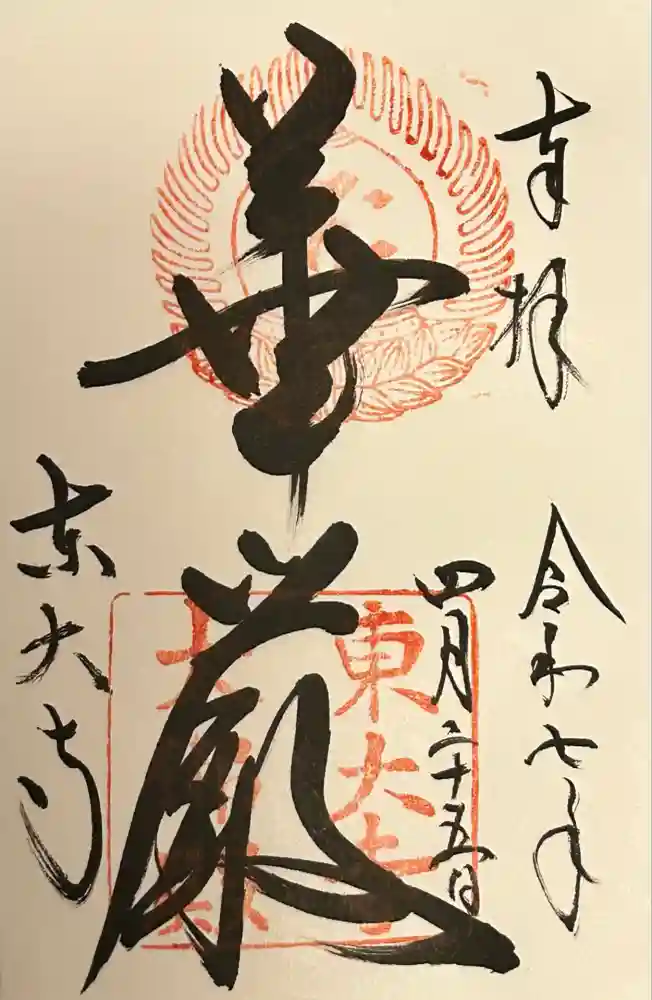 奉拝
令和七年
四月二十五日
華厳
東大寺
東大寺
大佛殿